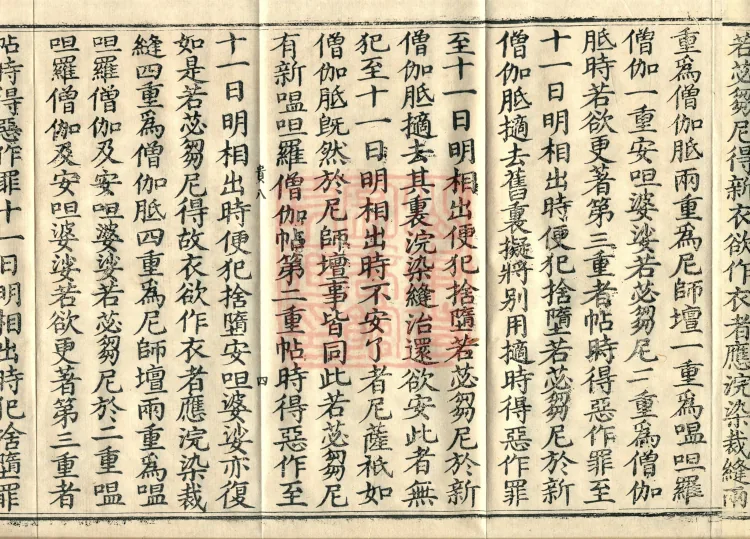 若苾芻尼得新衣欲作衣者應浣染裁縫兩
重爲僧伽胝兩重爲尼師壇一重爲嗢呾羅
僧伽一重安呾婆娑若苾芻尼二重爲僧伽
胝時若欲更著第三重者帖時得惡作罪至
十一日明相出時便犯捨墮若苾芻尼於新
僧伽胝擿去舊裏擬將別用擿時得惡作罪
至十一日明相出便犯捨墮若苾芻尼於新
僧伽胝擿去其裏浣染縫治還欲安此者無
犯至十一日明相出時不安了者尼薩祇如
僧伽胝旣然於尼師壇事皆同此若苾芻尼
有新嗢呾羅僧伽帖第二重帖時得惡作至
貴八
四
十一日明相出時便犯捨墮安呾婆娑亦復
如是若苾芻尼得故衣欲作衣者應浣染裁
縫四重爲僧伽胝四重爲尼師壇兩重爲嗢
呾羅僧伽及安呾婆娑若苾芻尼於二重嗢
呾羅僧伽及安呾婆娑若欲更著第三重者
帖時得惡作罪十一日明相出時犯捨墮罪